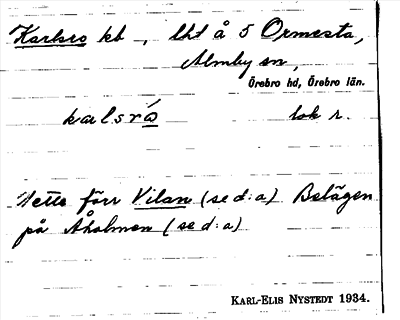 Karlsro kb, lht å 5 Ormesta,
Almby sn,
Örebro hd, Örebro län.
karlsró lok r.
Detta förr Vilan (se d:a) Belägen
på Åholmen (se d:a)
KARL-ELIS NYSTEDT 1934.